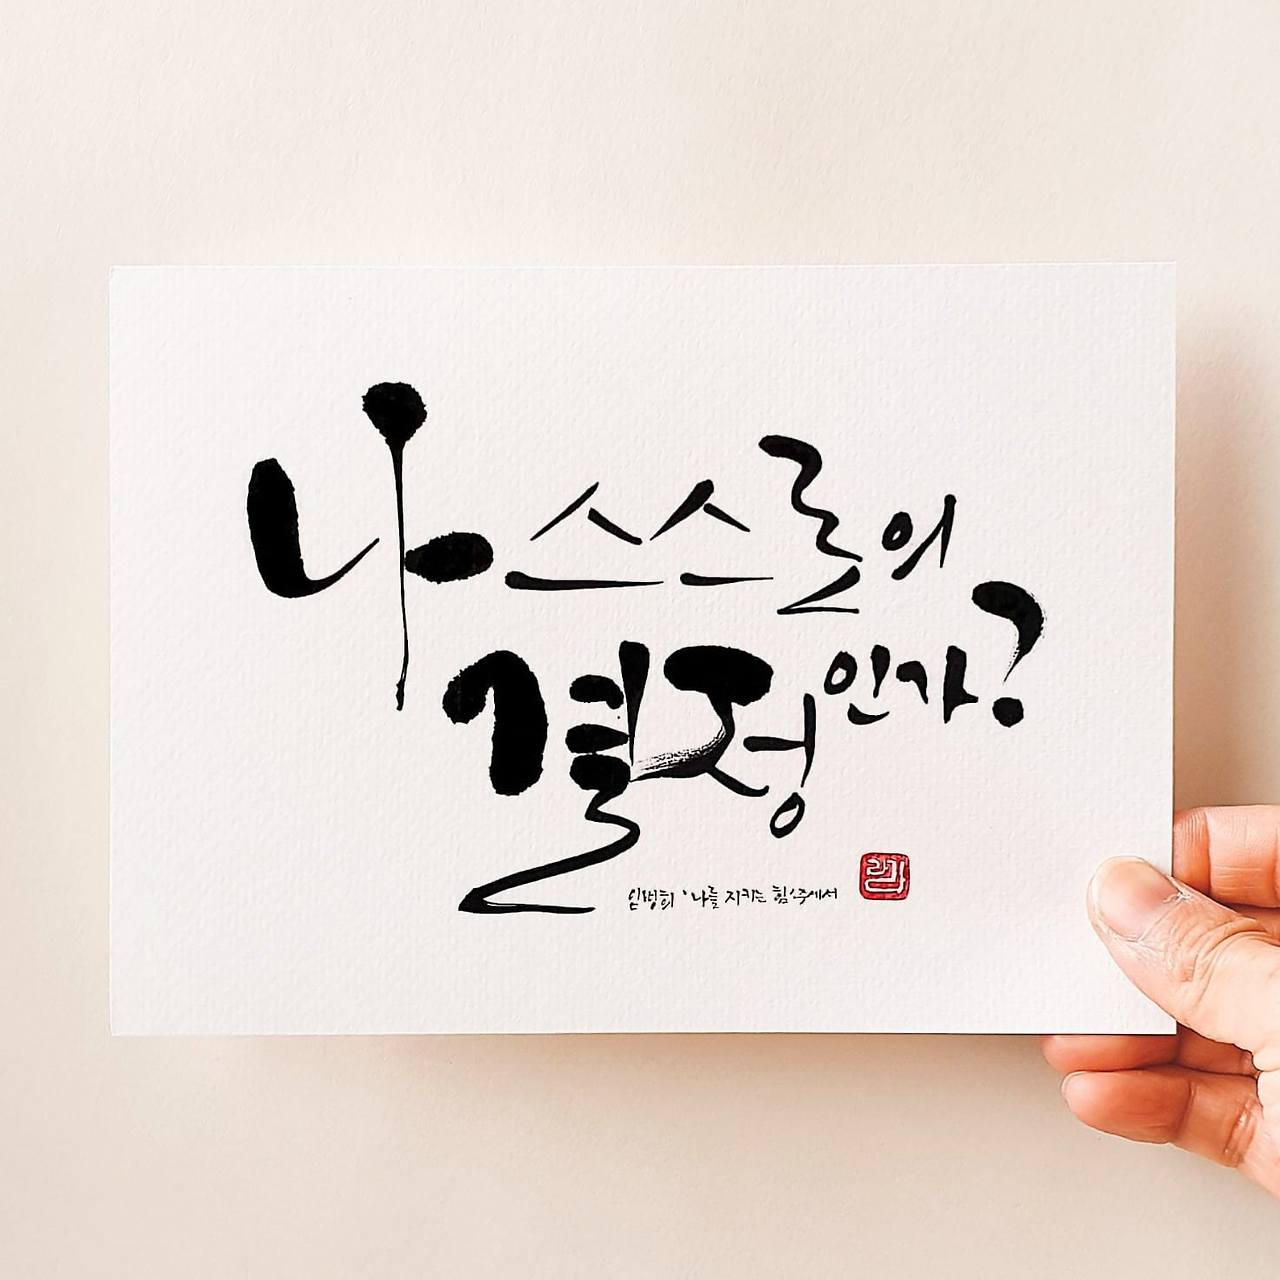 나 스스로의
결정인가?
임병희 '나를 지키는 힘' 중에서